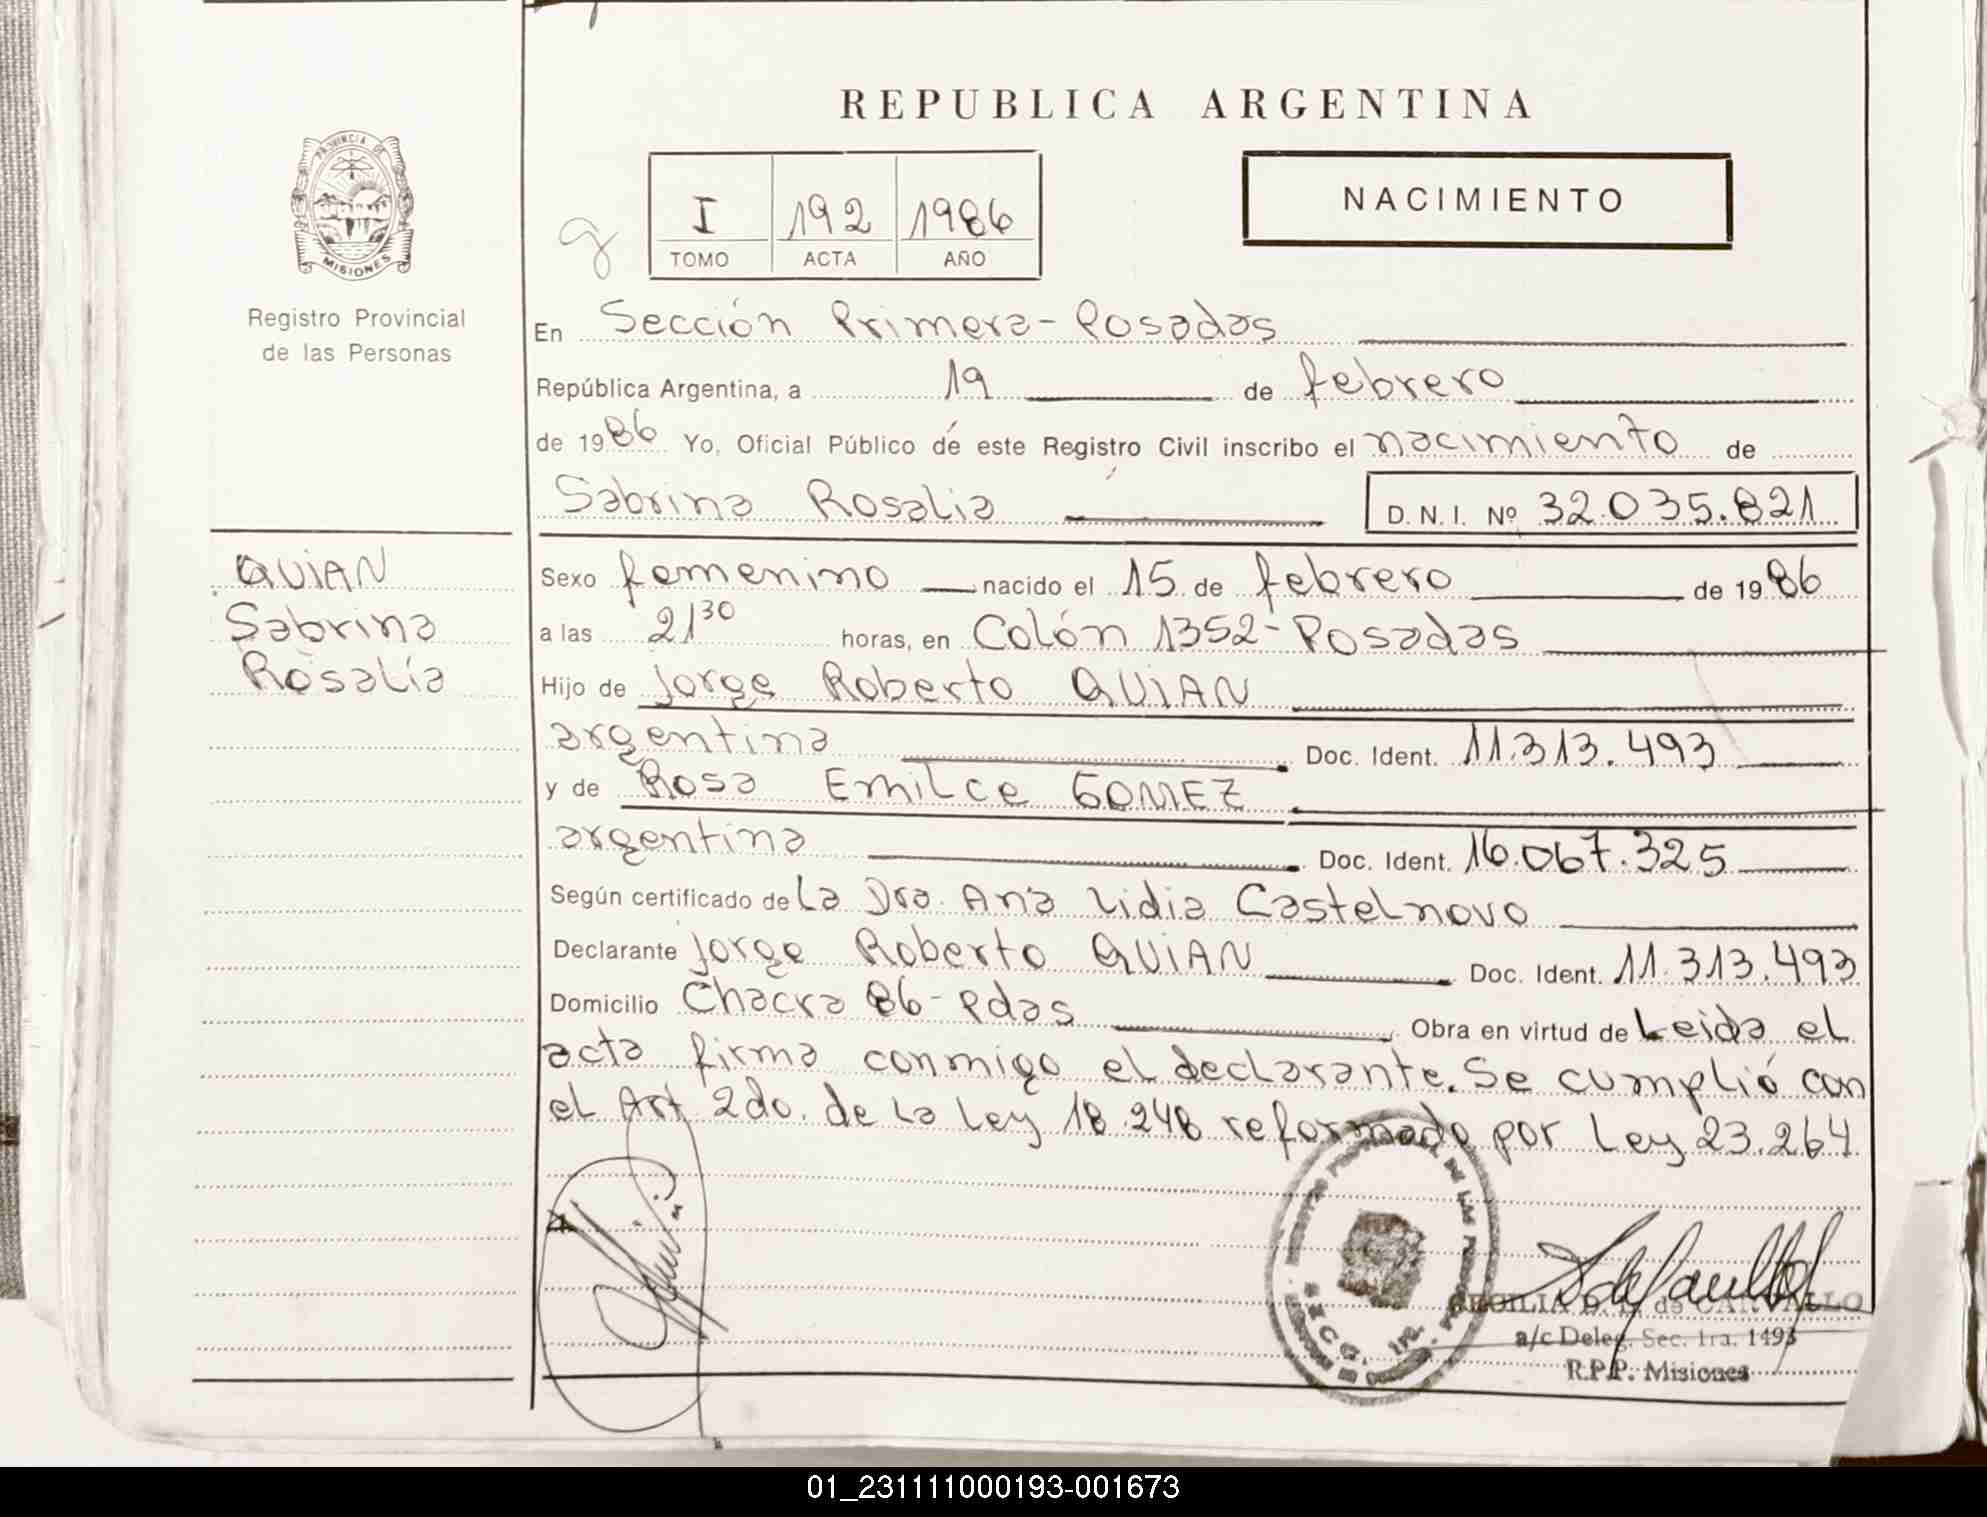 REPUBLICA ARGENTINA
PROVINCIA DE
MISIONES
Registro Provincial
de las Personas
I 192 1986
TOMO ACTA AÑO
NACIMIENTO
En Sección Primera - Posadas
República Argentina, a 19 de febrero
de 1986 Yo, Oficial Público de este Registro Civil inscribo el nacimiento de
Sabrina Rosalia D.N.I. Nº 32.035.821
QUIAN
Sabrina
Rosalía
Sexo femenino nacido el 15 de febrero de 1986
a las 21 30 horas, en Colón 1352 - Posadas
Hijo de Jorge Roberto QUIAN
argentina Doc. Ident. 11.313.493
y de Rosa Emilce GOMEZ
argentina Doc. Ident. 16.067.325
Según certificado de La Dra. Ana Lidia Castelnovo
Declarante Jorge Roberto QUIAN Doc. Ident. 11.313.493
Domicilio Chacra 86 - Pdas Obra en virtud de Leida el
acta firma conmigo el declarante. Se cumplió con
el Art 2do. de la Ley 18.248 reformado por Ley 23.264
CECILIA de CARVALLO
a/c Deleg. Sec. 1ra. 1493
R.P.P. Misiones
01_231111000193-001673